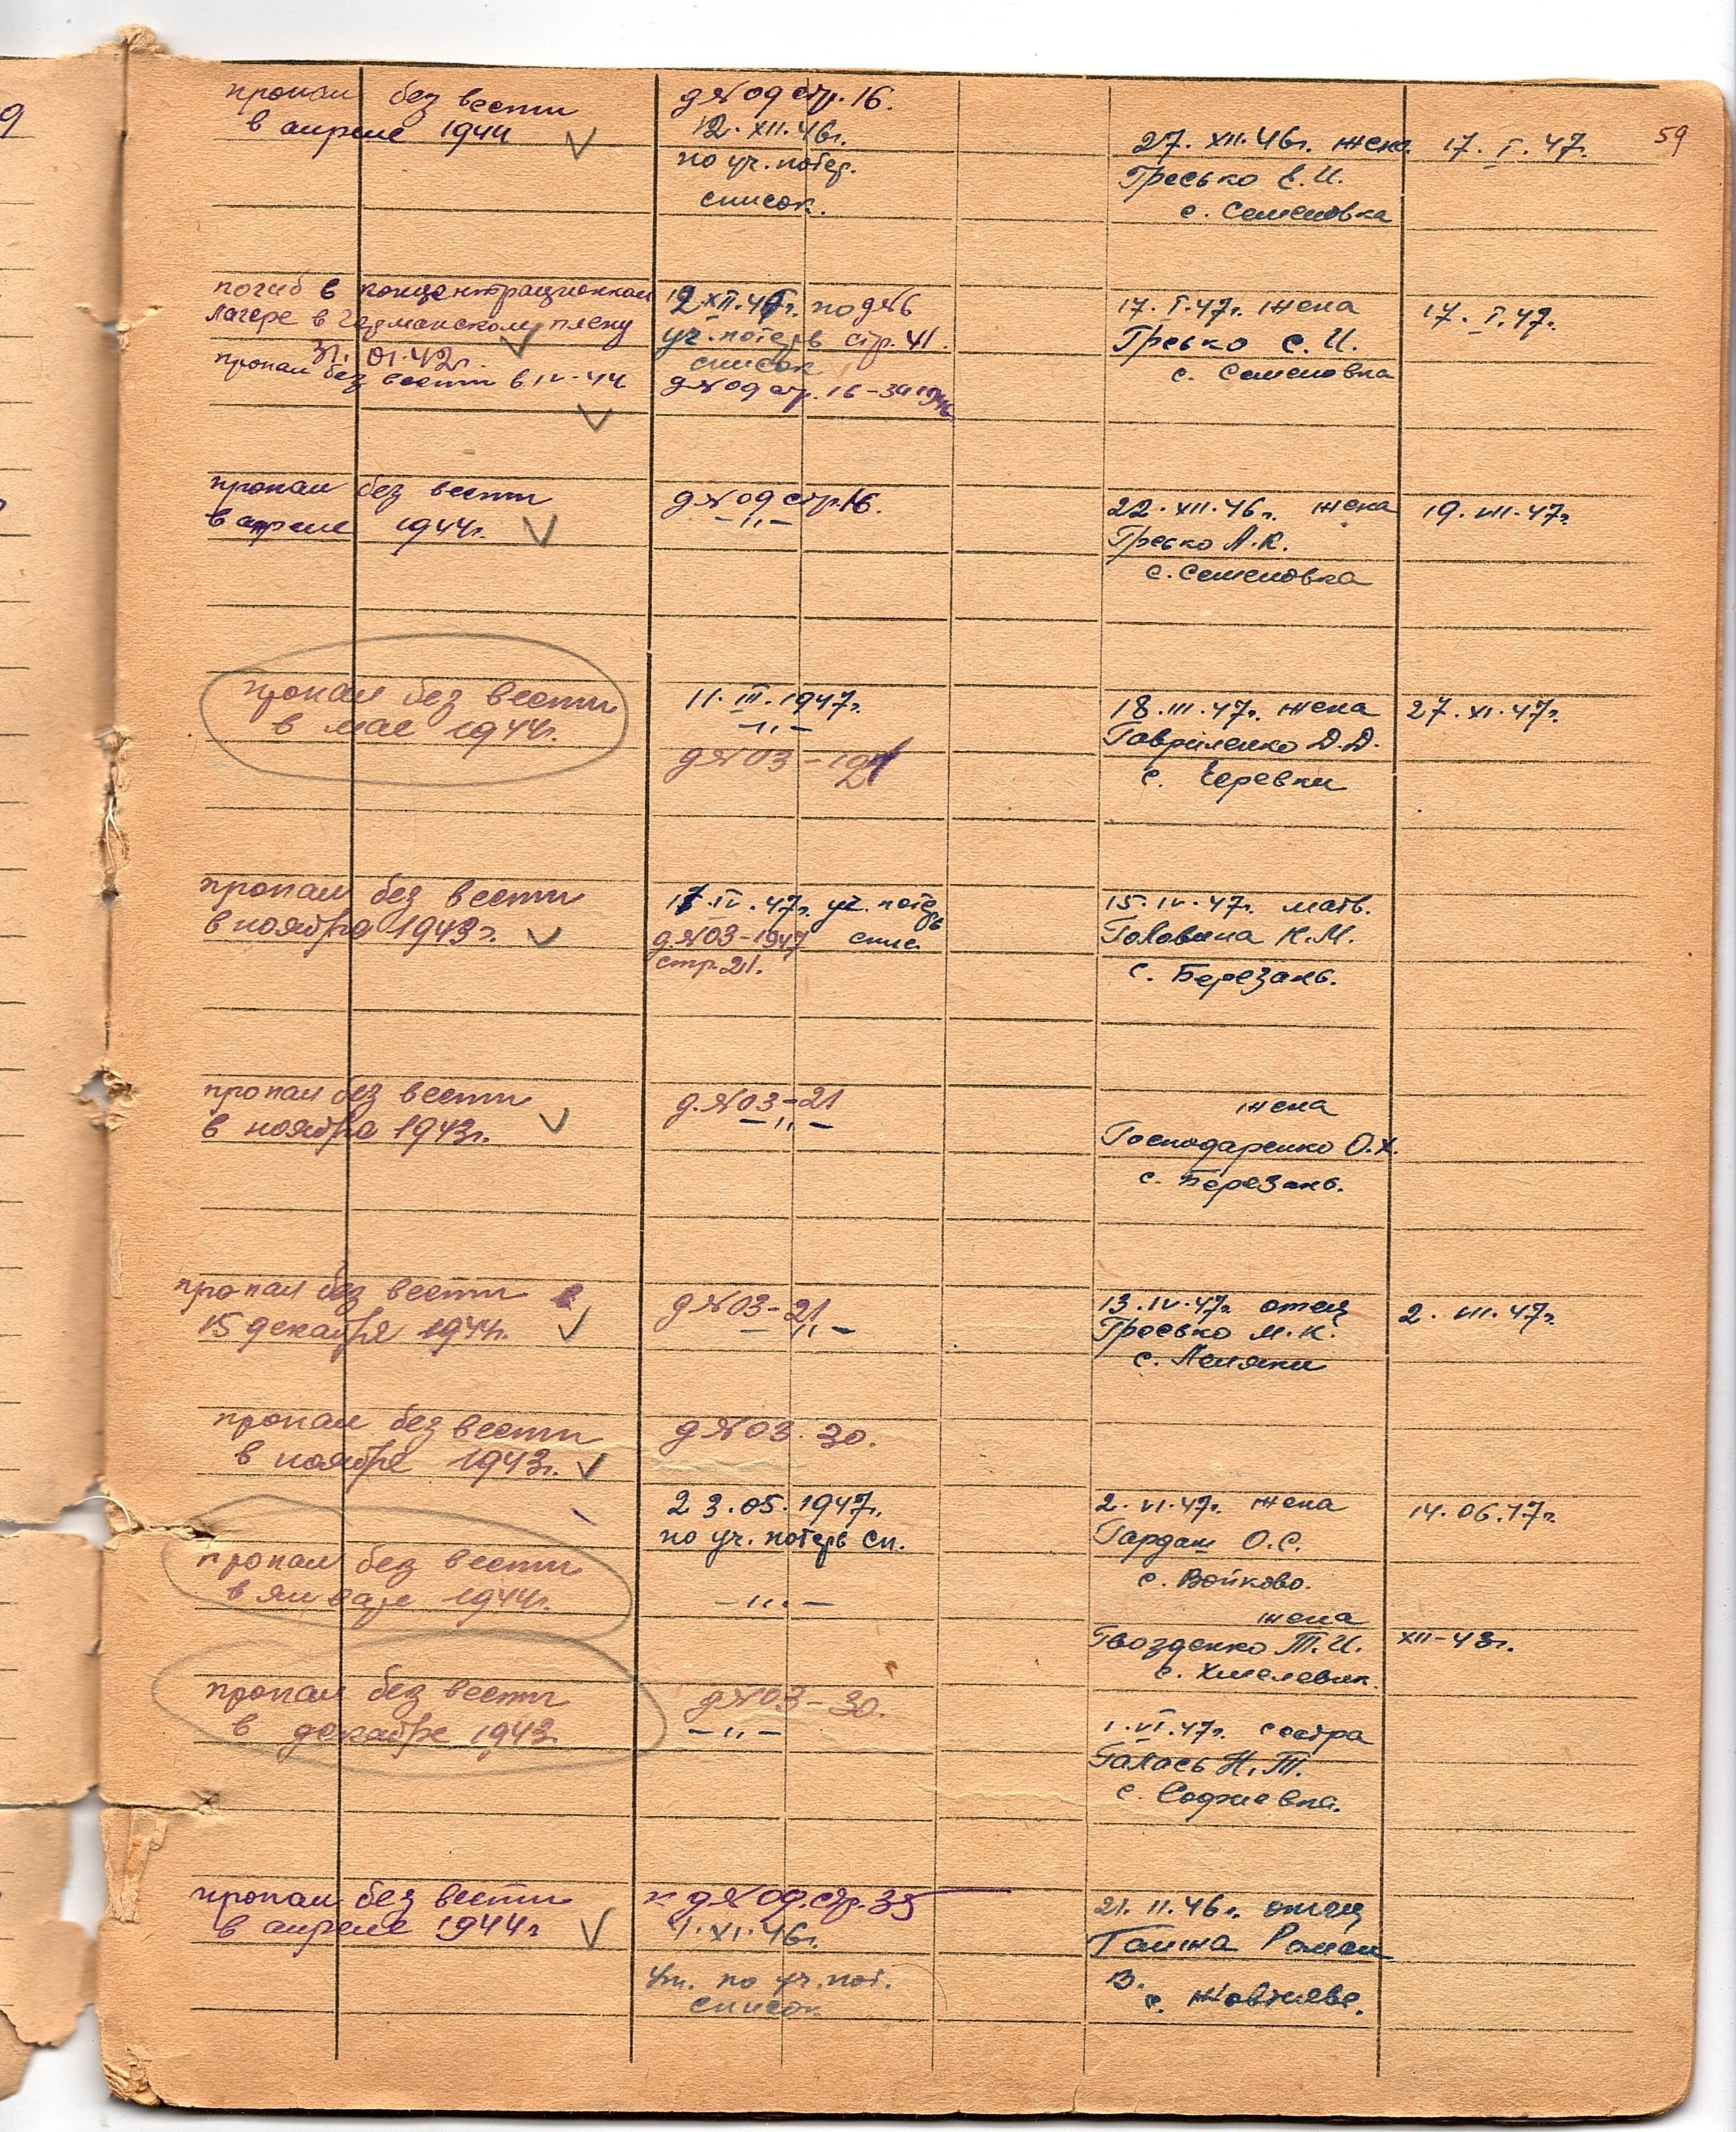 59
пропал без вести
в апреле 1944
д №09 стр. 16.
12. XII. 46г.
по уч. потер.
список.
27. XII. 46г. жена
Гресько Е. И.
с. Семеновка
17. I. 47.
погиб в концентрационном
лагере в германском плену
31. 01. 42г.
пропал без вести в IV-44
по д №6
уч. потерь стр. 41.
список
д №09 стр. 16
17. I. 47г. жена
Гресько Е. И.
с. Семеновка
17. I. 47г.
пропал без вести
в апреле 1944г.
д №09 стр. 16.
-"-
22. XII. 46г. жена
Гресько А. К.
с. Семеновка
19. VII. 47г.
пропал без вести
в мае 1944г.
11. III. 1947г.
-"-
д №03-
18. III. 47г. жена
Гавриленко Д. Д.
с. Черевки
27. XI. 47г.
пропал без вести
в ноябре 1943г.
17. IV. 47г. уч. потерь
д. №03-1947 спис.
стр. 21.
15. IV. 47г. мать.
Головина К. М.
с. Березань.
пропал без вести
в ноябре 1943г.
д. №03-21
-"-
жена
Господаренко О. Х.
с. Березань.
пропал без вести в
15 декабря 1944г.
д №03-21
-"-
13. IV. 47г. отец
Гресько М. К.
с. Лемяки
2. VII. 47г.
пропал без вести
в ноябре 1943г.
д №03. 30.
23. 05. 1947г.
по уч. потерь сп.
2. VI. 47г. жена
Гардаш О. С.
с. Войково.
14. 06. 47г.
пропал без вести
в январе 1944г.
-"-
жена
Гвозденко Т. И.
с. Хмелевик
XII-43г.
пропал без вести
в декабре 1943
д №03-30.
-"-
1. VI. 47г. сестра
Галась Н. Т.
с. Софиевка.
пропал без вести
в апреле 1944г
д №09. стр. 35
1. XI. 46г.
по уч. пот.
список
21. 11. 46г. отец
Гамжа Роман
В.
с. Жовтнева.